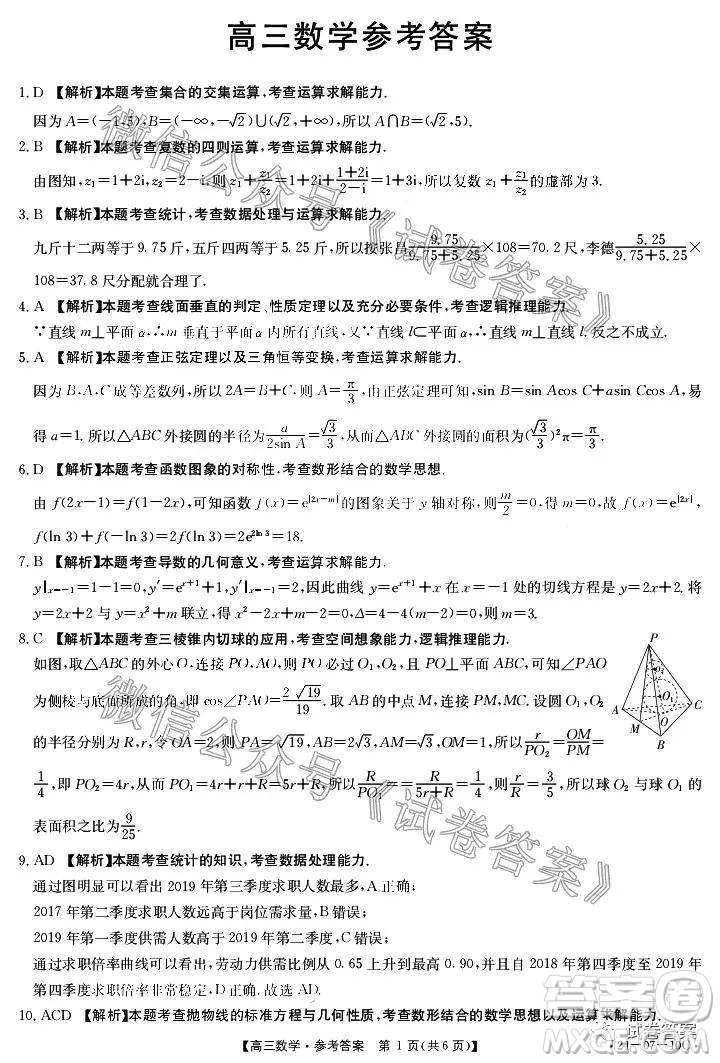 高三数学参考答案
1. D 【解析】本题考查集合的交集运算,考查运算求解能力.
因为 A=(-1,5),B=(-∞,-√2)∪(√2,+∞),所以 A∩B=(√2,5).
2. B 【解析】本题考查复数的四则运算,考查运算求解能力.
由图知,z₁=1+2i,z₂=2-i,所以 z₁+z₁/z₂=1+2i+(1+2i)/(2-i)=1+3i,所以复数 z₁+z₁/z₂ 的虚部为 3.
3. B 【解析】本题考查统计,考查数据处理与运算求解能力.
九斤十二两等于 9.75 斤,五斤四两等于 5.25 斤,所以按张昌 9.75/(9.75+5.25)×108=70.2 尺,李德 5.25/(9.75+5.25)×
108=37.8 尺分配就合理了.
4. A 【解析】本题考查线面垂直的判定、性质定理以及充分必要条件,考查逻辑推理能力.
∵直线 m⊥平面 α,∴m 垂直于平面 α 内所有直线,∵直线 l⊂平面 α,∴直线 m⊥直线 l.反之不成立.
5. A 【解析】本题考查正弦定理以及三角恒等变换,考查运算求解能力.
因为 B,A,C 成等差数列,所以 2A=B+C,则 A=π/3,由正弦定理可知,sin B=sin Acos C+sin AcosB,易
得 a=1.所以△ABC 外接圆的半径为 a/(2sin A)=√3/3,从而△ABC 外接圆的面积为(√3/3)²π=π/3.
6. D 【解析】本题考查函数图象的对称性,考查数形结合的数学思想.
由 f(2x-1)=f(1-2x),可知函数 f(x)=e^|2x-m| 的图象关于 y 轴对称,则 m/2=0,得 m=0,故 f(x)=e^|2x|,
f(ln 3)+f(-ln 3)=2f(ln 3)=2e^(2ln 3)=18.
7. B 【解析】本题考查导数的几何意义,考查运算求解能力.
y|x=-1=1-1=0,y′=e^(x+1)+1,y′|x=-1=1+1=2,因此曲线 y=e^(x+1)+x 在 x=-1 处的切线方程是 y=2x+2.将
y=2x+2 与 y=x²+m 联立,得 x²-2x+m-2=0,Δ=4-4(m-2)=0,m=3.
8. C 【解析】本题考查三棱锥内切球的应用,考查空间想象能力,逻辑推理能力.
如图,取△ABC 的外心 O,连接 PO,AO,则 PO 必过 O₁,O₂,且 PO⊥平面 ABC,可知∠PAO
为侧棱与底面所成的角,即 cos∠PAO=2√19/19.取 AB 的中点 M,连接 PM,MC.设圆 O₁,O₂
的半径分别为 R,r,令 OA=2,则 PA=√19,AB=2√3,AM=√3,OM=1,所以 r/PO₂=OM/PM=
1/4,即 PO₂=4r,从而 PO₁=4r+r+R=5r+R,所以 R/PO₁=R/(5r+R)=1/4,则 r/R=3/5,所以球 O₂ 与球 O₁ 的
表面积之比为 9/25.
P
O₂
O₁
A
M
O
B
C
9. AD 【解析】本题考查统计的知识,考查数据处理能力.
通过图明显可以看出 2019 年第三季度求职人数最多,A 正确;
2017 年第二季度求职人数远高于岗位需求量,B 错误;
2019 年第一季度供需人数高于 2019 年第二季度,C 错误;
通过求职倍率曲线可以看出,劳动力供需倍率从 0.65 上升到最高 0.90,并且自 2018 年第四季度至 2019 年
第四季度求职倍率非常稳定,D 正确.故选 AD.
10. ACD 【解析】本题考查抛物线的标准方程与几何性质,考查数形结合的思想以及运算求解能力.
【高三数学·参考答案 第 1 页(共 6 页)】
微信公众号《试卷答案》
微信公众号《试卷答案》